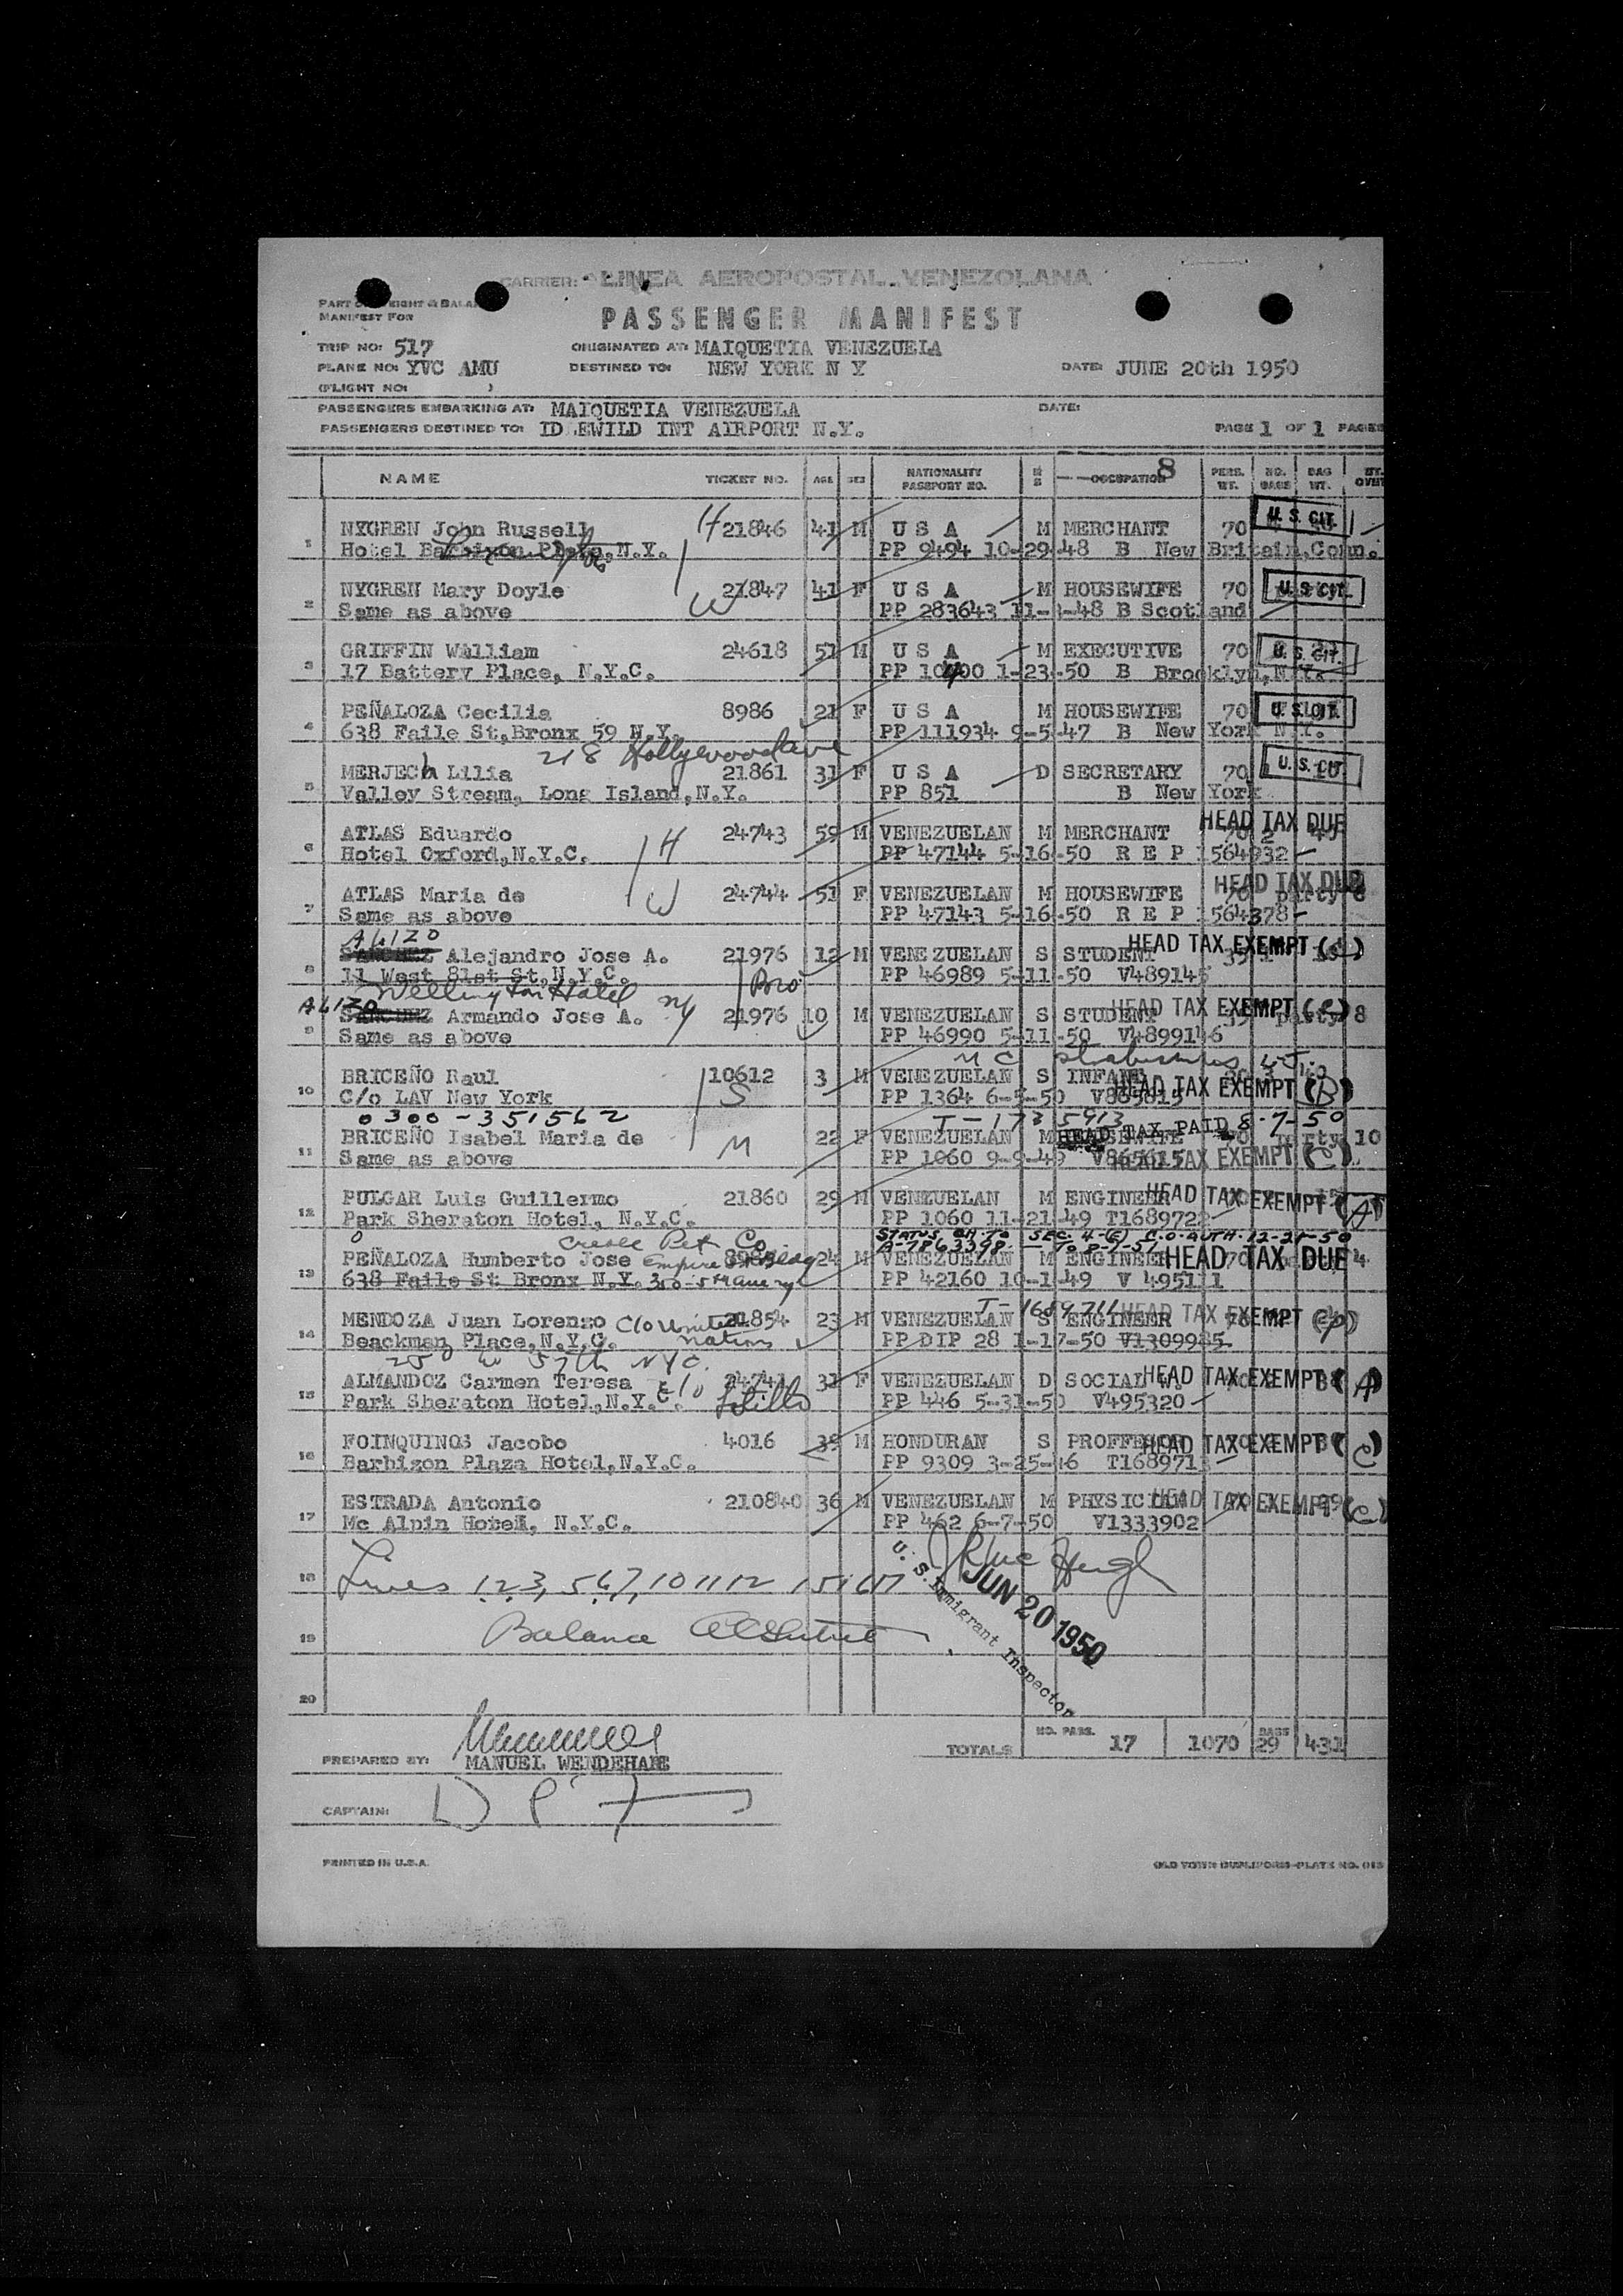 CARRIER: LINEA AEROPOSTAL VENEZOLANA
MANIFEST FOR
PASSENGER MANIFEST
TRIP NO: 517 ORIGINATED AT: MAIQUETIA VENEZUELA
PLANE NO: YVC AMU DESTINED TO: NEW YORK N Y DATE: JUNE 20th 1950
(FLIGHT NO: )
PASSENGERS EMBARKING AT: MAIQUETIA VENEZUELA DATE:
PASSENGERS DESTINED TO: IDLEWILD INT AIRPORT N.Y. PAGE 1 OF 1 PAGES
8
NAME TICKET NO. AGE SEX NATIONALITY PASSPORT NO. M S OCCUPATION PERS. WT. NO. BAGS BAG WT.
NYGREN John Russell H 21846 41 M U S A M MERCHANT 70 U. S. CIT.
1 Hotel Barbizon Plaza, N.Y. PP 9494 10-29-48 B New Britain, Conn.
NYGREN Mary Doyle W 21847 41 F U S A M HOUSEWIFE 70 U. S. CIT.
2 Same as above PP 283643 11- -48 B Scotland
GRIFFIN William 24618 51 M U S A M EXECUTIVE 70 U. S. CIT.
3 17 Battery Place, N.Y.C. PP 10400 1-23-50 B Brooklyn, N.Y.
PEÑALOZA Cecilia 8986 21 F U S A M HOUSEWIFE 70 U. S. CIT.
4 638 Faile St,Bronx 59 N.Y. PP 111934 9-5-47 B New York N.Y.
218 Hollywood ave
MERJECh Lilia 21861 31 F U S A D SECRETARY 70 U. S. CIT.
5 Valley Stream, Long Island,N.Y. PP 851 B New York
ATLAS Eduardo H 24743 59 M VENEZUELAN M MERCHANT HEAD TAX DUE
6 Hotel Oxford,N.Y.C. PP 47144 5-16-50 R E P 1564932
ATLAS Maria de W 24744 51 F VENEZUELAN M HOUSEWIFE 70 party 6 HEAD TAX DUE
7 Same as above PP 47143 5-16-50 R E P 1564378
ALIZO
SANCHEZ Alejandro Jose A. 21976 12 M VENEZUELAN S STUDENT HEAD TAX EXEMPT (C)
8 11 West 81st St,N.Y.C. Bro PP 46989 5-11-50 V489145
Wellington Hotel NY
ALIZO
SANCHEZ Armando Jose A. 21976 10 M VENEZUELAN S STUDENT HEAD TAX EXEMPT (C) party 8
9 Same as above PP 46990 5-11-50 V4899146
BRICEÑO Raul S 10612 3 M VENEZUELAN S INFANT HEAD TAX EXEMPT (B)
10 C/o LAV New York PP 1364 6-5-50 V865615
0300-351562 T-1735913
BRICEÑO Isabel Maria de M 22 F VENEZUELAN M HOUSEWIFE HEAD TAX PAID 8-7-50 party 10
11 Same as above PP 1060 9-9-49 V865615 HEAD TAX EXEMPT (C)
PULGAR Luis Guillermo 21860 29 M VENEZUELAN M ENGINEER HEAD TAX EXEMPT (A)
12 Park Sheraton Hotel, N.Y.C. PP 1060 11-21-49 T1689722
Creole Pet Co STATUS CH. TO SEC. 4-(E) C.O. AUTH. 12-21-50
A-7863398 TO 8-7-51
PEÑALOZA Humberto Jose Empire St Bldg 24 M VENEZUELAN M ENGINEER HEAD TAX DUE 4
13 638 Faile St Bronx N.Y. 350-5th Ave NY PP 42160 10-1-49 V 495111
T-1689711
MENDOZA Juan Lorenzo C/o United 21854 23 M VENEZUELAN S ENGINEER HEAD TAX EXEMPT
14 Beackman Place,N.Y.C. Nations PP DIP 28 1-17-50 V1309985
250 W 57th NYC.
ALMANDOZ Carmen Teresa c/o 24741 31 F VENEZUELAN D SOCIAL W. HEAD TAX EXEMPT (A)
15 Park Sheraton Hotel,N.Y.C. PP 446 5-31-50 V495320
FOINQUINOS Jacobo 4016 39 M HONDURAN S PROFFESOR HEAD TAX EXEMPT (C)
16 Barbizon Plaza Hotel,N.Y.C. PP 9309 3-25-46 T1689713
ESTRADA Antonio 210840 36 M VENEZUELAN M PHYSICIAN HEAD TAX EXEMPT (C)
17 Mc Alpin Hotel, N.Y.C. PP 462 6-7-50 V1333902
18 Lines 1,2,3, 5,6,7, 10 11 12 15 16 17
JUN 20 1950
U. S. Immigrant Inspector
19 Balance
20
TOTALS NO. PASS. 17 1070 BAGS 29 431
PREPARED BY: MANUEL WENDEHAKE
CAPTAIN:
PRINTED IN U.S.A. OLD TOWN DUPLIFORM-PLATE NO. 013